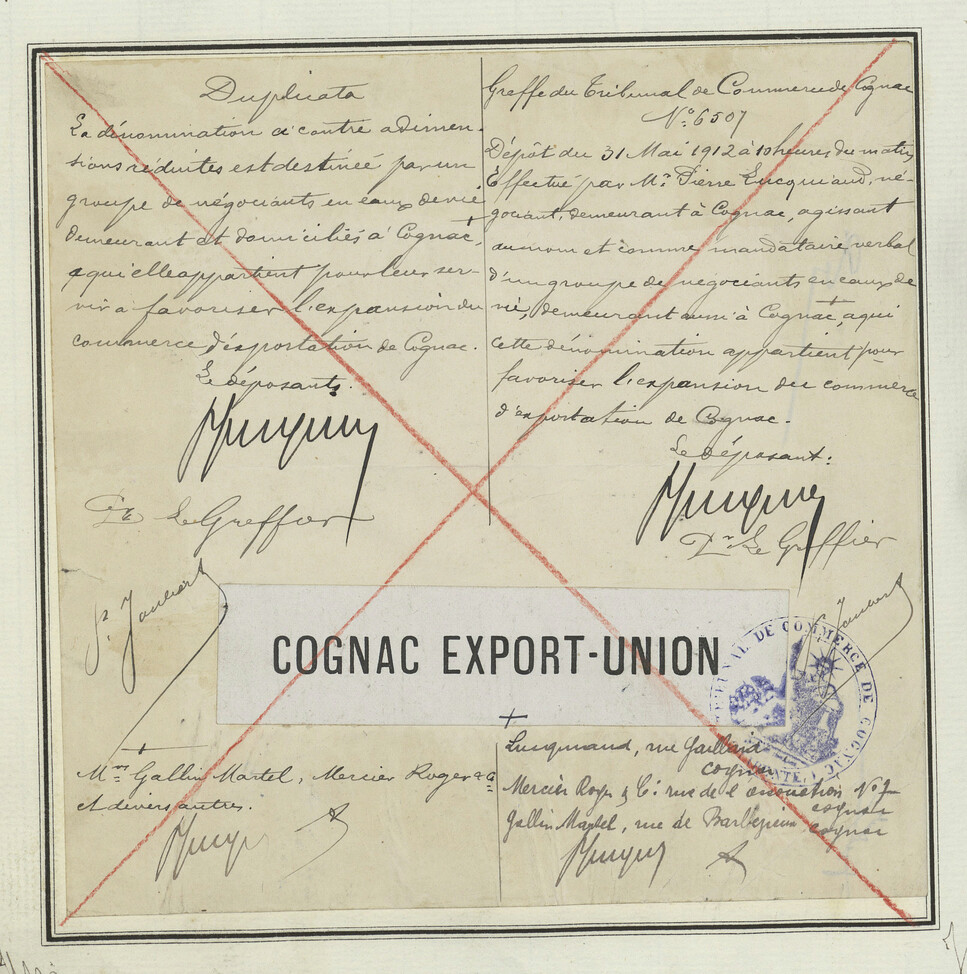 Duplicata
La dénommination ci contre a dimen-
sions réduites est destinée par un
groupe de négociants en eaux de vie
demeurant et domiciliés à Cognac +,
à qui elle appartient pour leur ser-
vir à favoriser l'expansion du
commerce d'exportation de Cognac.
Le déposants.
Le Greffier
Greffe du Tribunal de Commerce de Cognac
No. 6507
Dépôt du 31 Mai 1912 à 10 heures du matin
Effectué par Mr. Pierre Lucquiaud, né-
gociant, demeurant à Cognac, agissant
au nom et comme mandataire verbal
d'un groupe de négociants en eaux de
vie, demeurant aussi à Cognac +, a qui
cette dénomination appartient pour
favoriser l'expansion du commerce
d'exportation de Cognac.
Le déposant:
Le Greffier
COGNAC EXPORT-UNION
TRIBUNAL DE COMMERCE DE COGNAC
+
Mrs Gallin Martel, Mercier Roger & Cie
et divers autres.
+
Lucquiaud, rue Gaillard
cognac
Mercier Roger & Cie rue de l No 7
cognac
Gallin Martel, rue de Barbezieux cognac